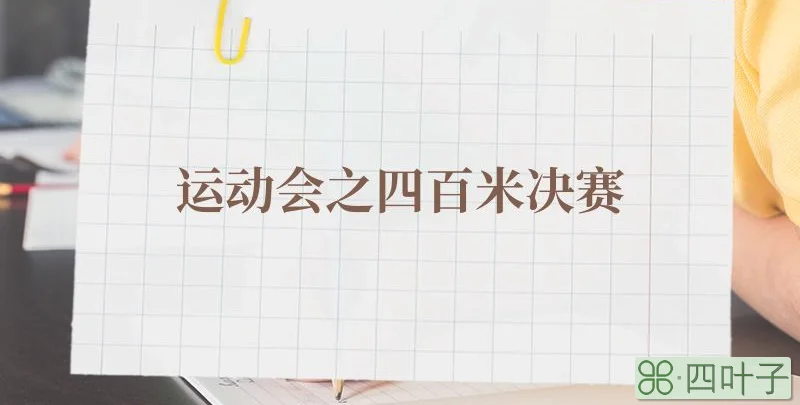 运动会之四百米决赛
四叶子